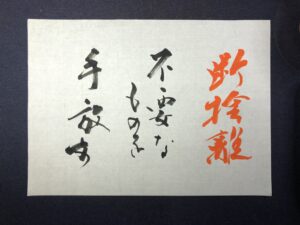 断捨離
不要な
ものを
手放す